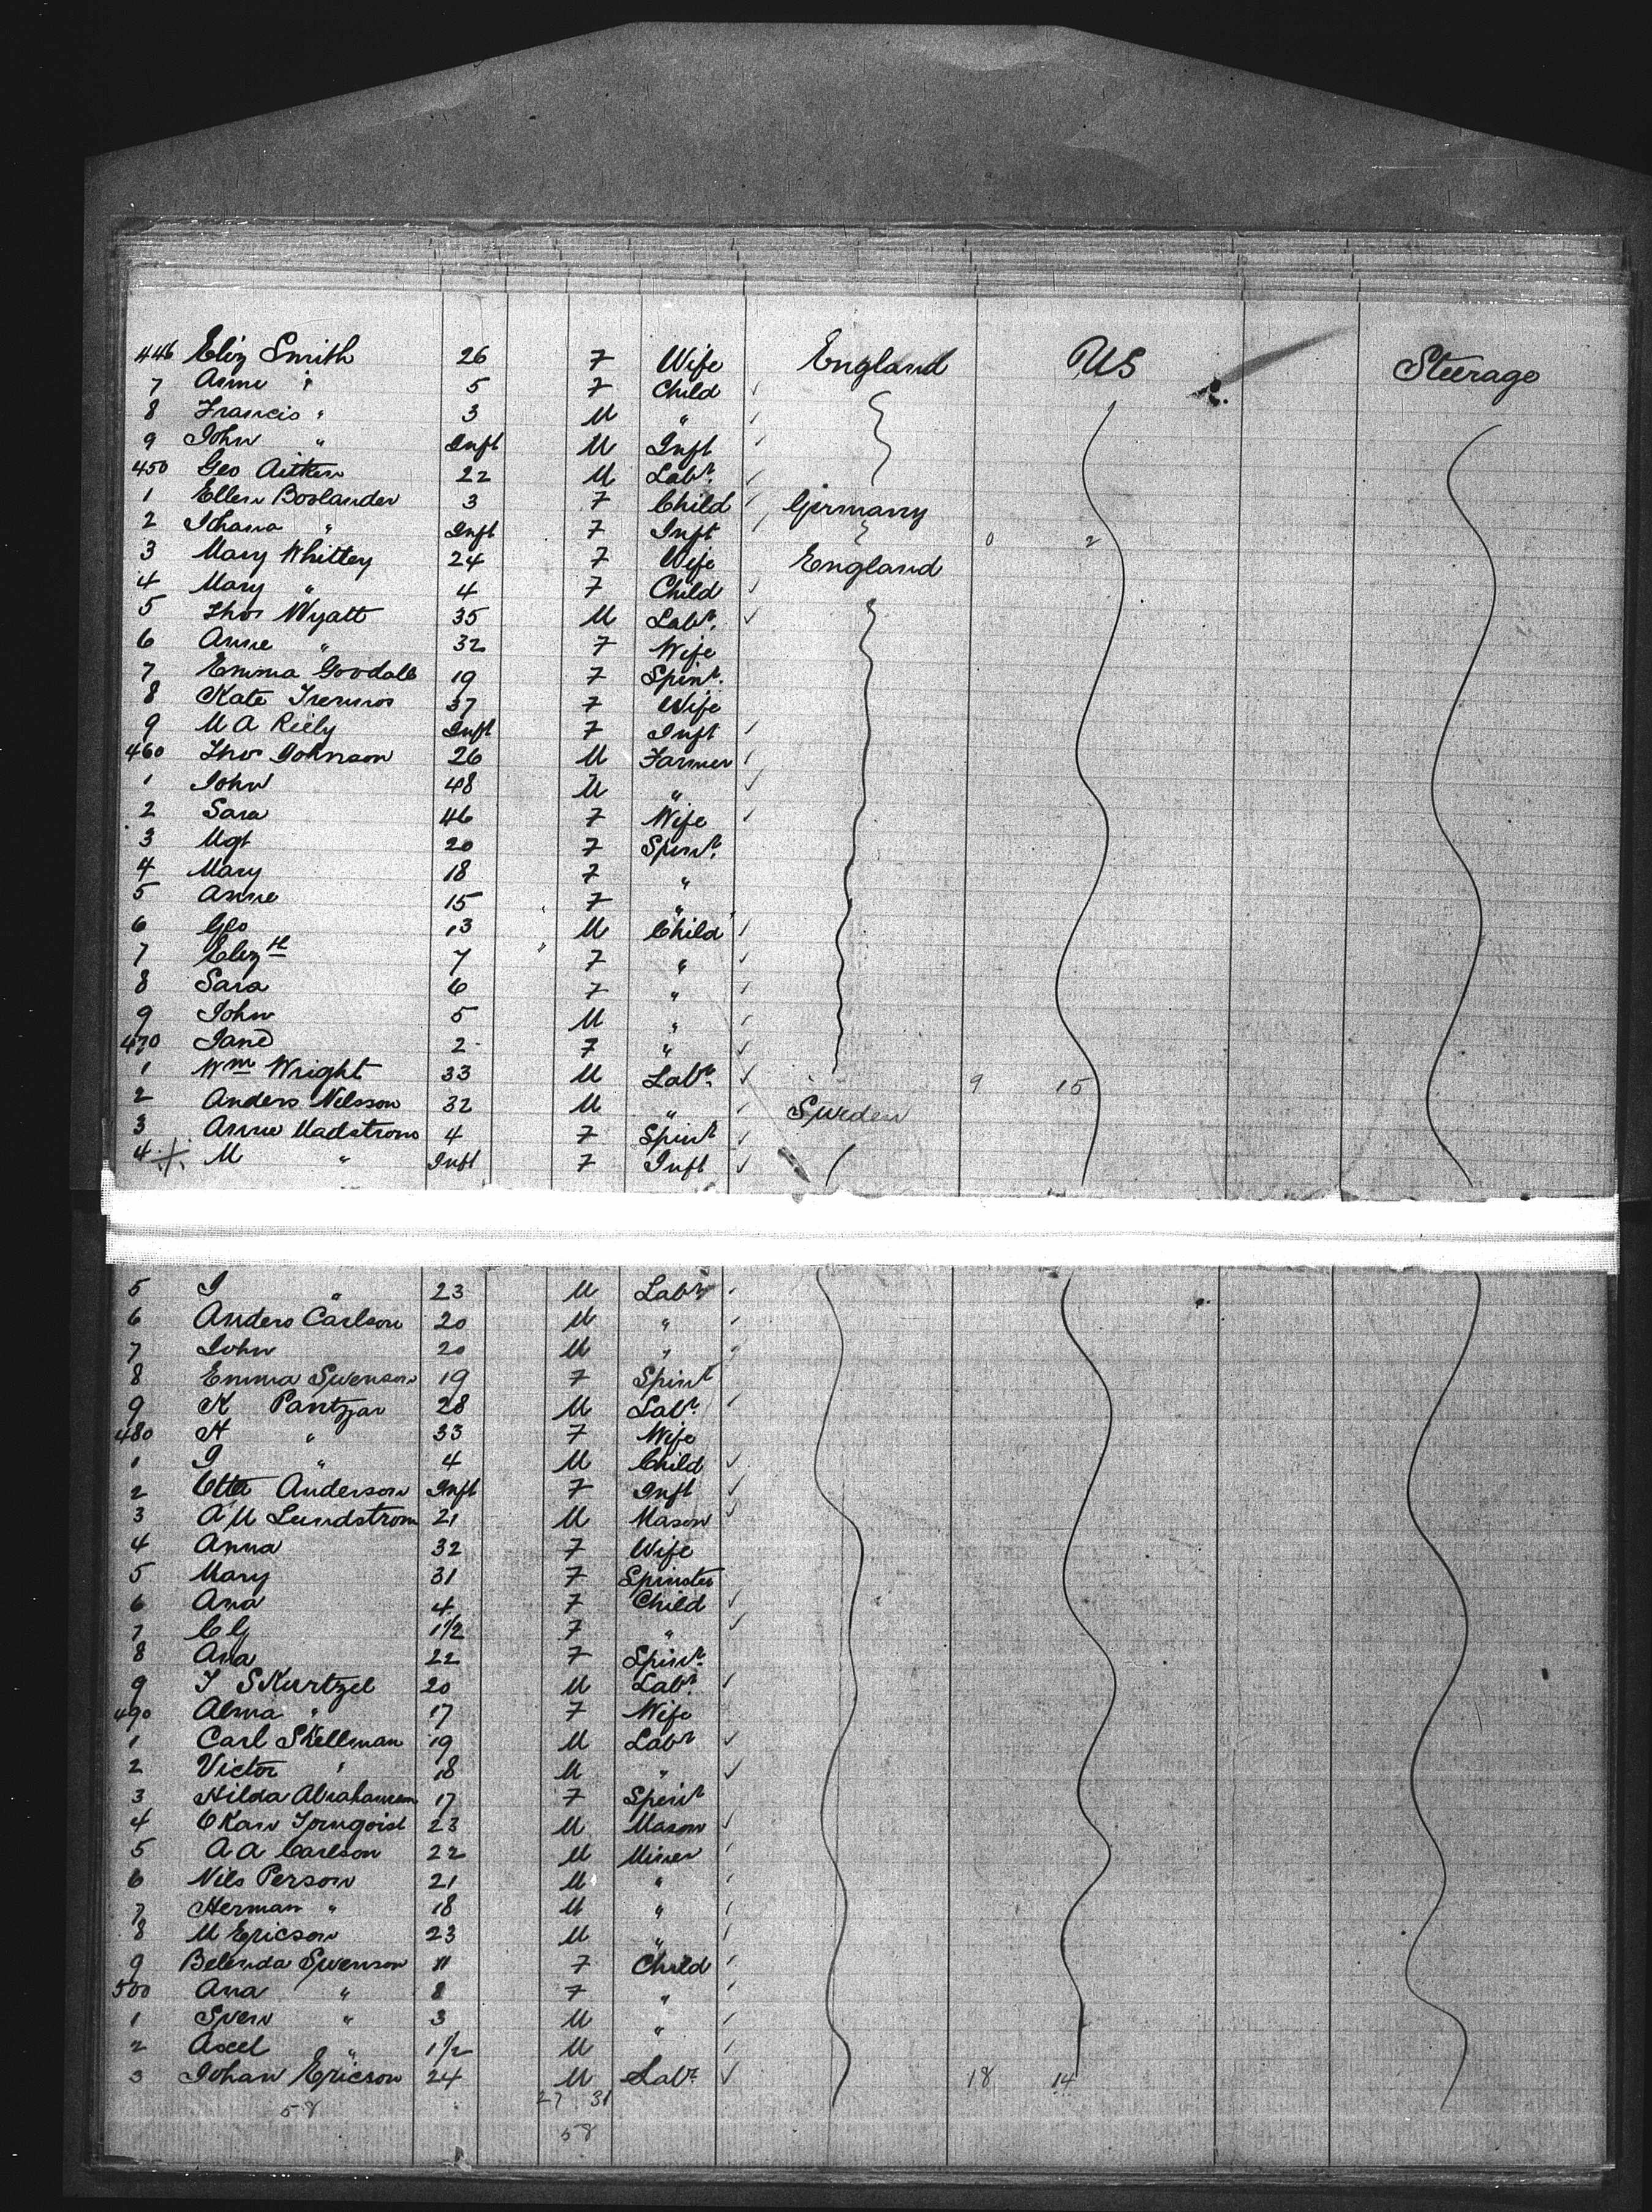 446 Eliz Smith 26 F Wife England US Steerage
7 Anne " 5 F Child
8 Francis " 3 M "
9 John " Inft M Inft
450 Geo Aitken 22 M Labr.
1 Ellen Boslander 3 F Child Germany
2 Johana " Inft F Inft " 0 2
3 Mary Whitley 24 F Wife England
4 Mary " 4 F Child
5 Thos Wyatt 35 M Labr.
6 Anne " 32 F Wife
7 Emma Goodale 19 F Spinr.
8 Kate 37 F Wife
9 M A Riely Inft F Inft
460 Thos Johnson 26 M Farmer
1 John 48 M "
2 Sara 46 F Wife
3 Mgt 20 F Spinr.
4 Mary 18 F "
5 Anne 15 F "
6 Geo 13 M Child
7 Elizth 7 F "
8 Sara 6 F "
9 John 5 M "
470 Jane 2 F "
1 Wm Wright 33 M Labr. 9 15
2 Anders Nilsson 32 M " Sweden
3 Anne Madstrom 4 F Spinr
4 M " Inft F Inft
5 J " 23 M Labr
6 Anders Carlson 20 M "
7 John 20 M "
8 Emma Swenson 19 F Spinr
9 K Pantzar 28 M Labr.
480 H " 33 F Wife
1 J " 4 M Child
2 Anderson Inft F Inft
3 A M Lundstrom 21 M Mason
4 Anna 32 F Wife
5 Mary 31 F Spinster
6 Ana 4 F Child
7 C G 1 1/2 F "
8 Ana 22 F Spinr.
9 J SKurtzel 20 M Labr.
490 Alma " 17 F Wife
1 Carl Skellman 19 M Labr
2 Victor " 18 M "
3 Hilda Abrahamson 17 F Spinr
4 Oskar 23 M Mason
5 A A Carlson 22 M Miner
6 Nils Person 21 M "
7 Herman " 18 M "
8 M Ericson 23 M "
9 Belinda Swenson 11 F Child
500 Ana " 8 F "
1 Sven " 3 M "
2 Axel " 1 1/2 M "
3 Johan Ericson 24 M Labr. 18 14
58 27 31
58